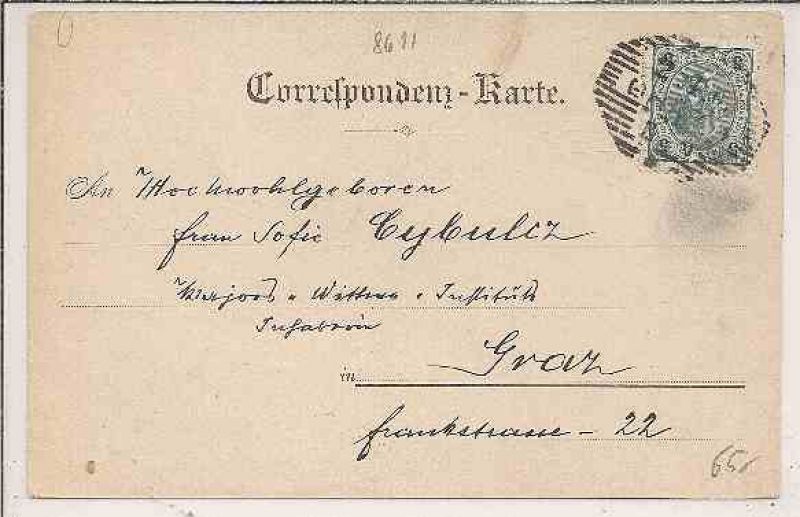 8611
Correspondenz-Karte.
An Hochwohlgeboren
frau Sofie Cybulcz
Majors - Wittwe - Instituts
Inhaberin
in Graz
frankstrasse - 22
65